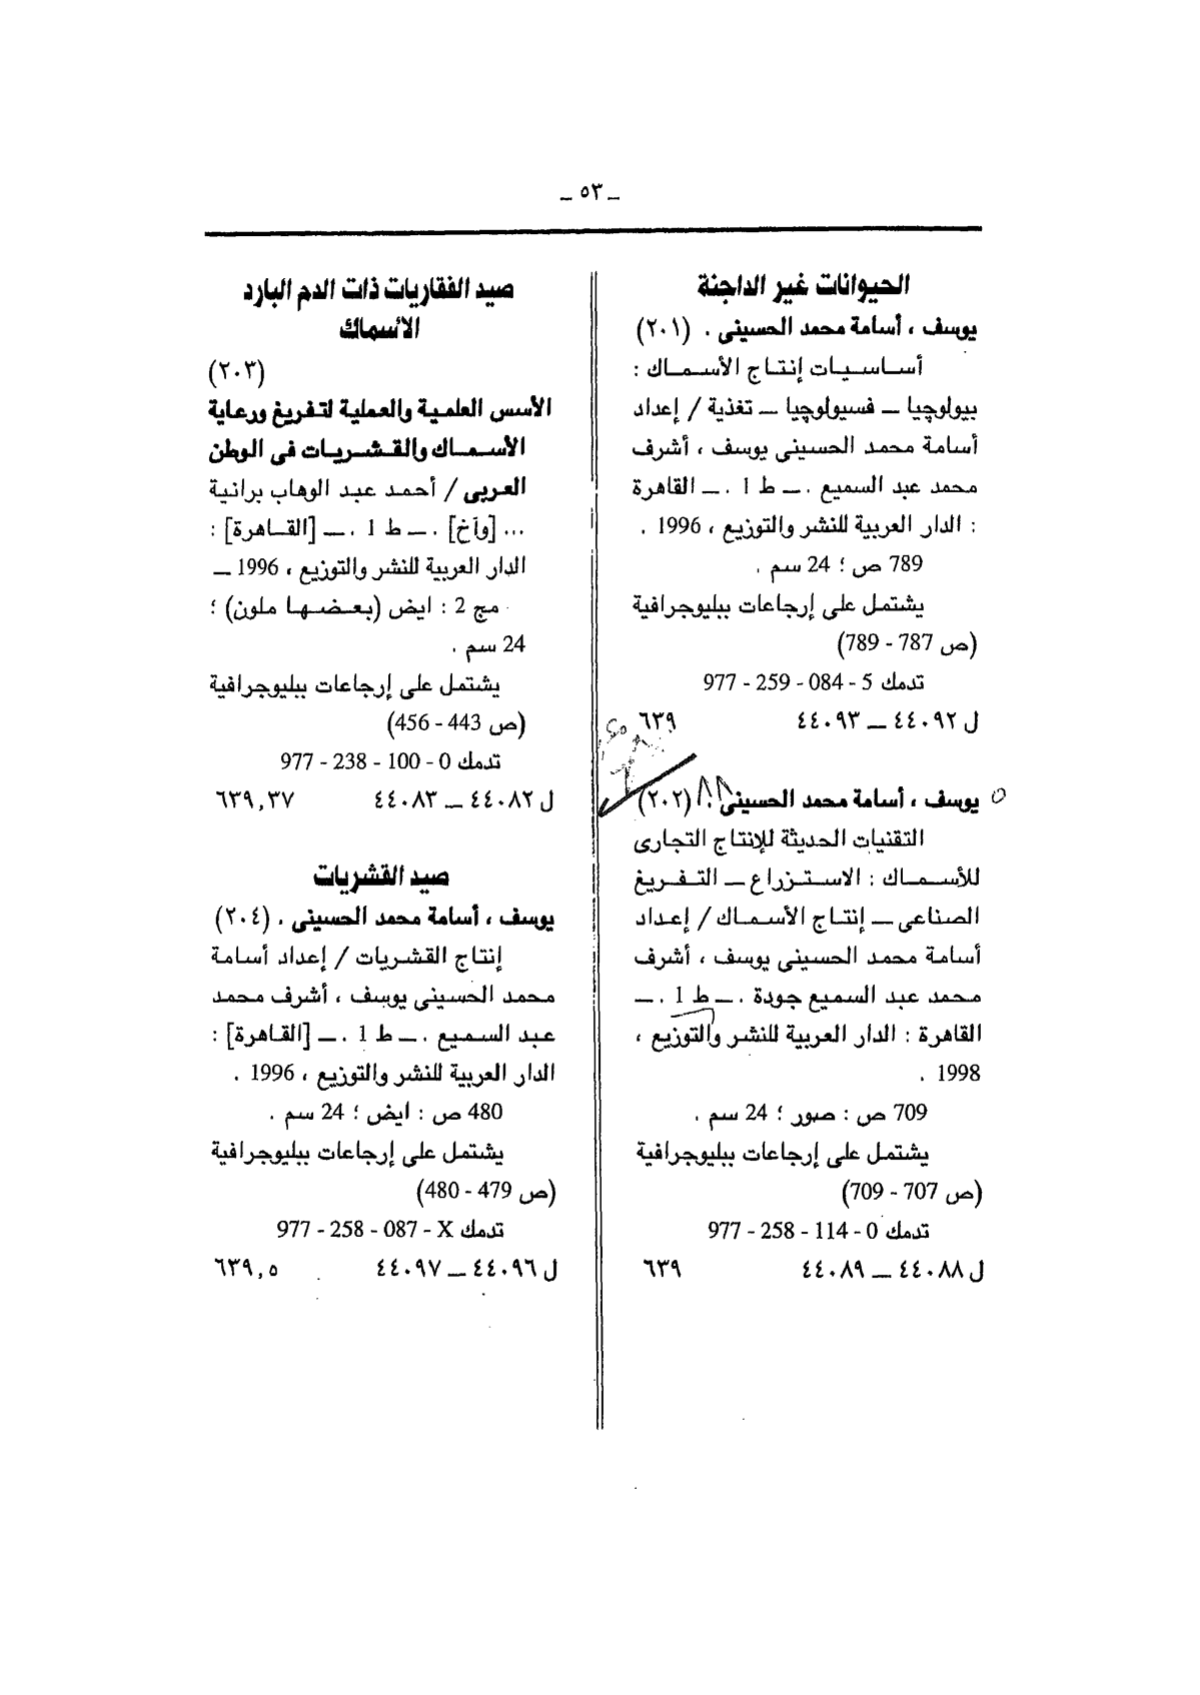 ـ ٥٣ ـ
الحيوانات غير الداجنة
يوسف ، أسامة محمد الحسينى . (٢٠١)
أساسيات إنتاج الأسماك :
بيولوچيا ـ فسيولوچيا ـ تغذية / إعداد
أسامة محمد الحسينى يوسف ، أشرف
محمد عبد السميع . ـ ط 1 . ـ القاهرة
: الدار العربية للنشر والتوزيع ، 1996 .
789 ص ؛ 24 سم .
يشتمل على إرجاعات ببليوجرافية
(ص 787 - 789)
تدمك 5 - 084 - 259 - 977
ل ٤٤٠٩٢ ـ ٤٤٠٩٣ ٦٣٩
يوسف ، أسامة محمد الحسينى . (٢٠٢)
التقنيات الحديثة للإنتاج التجارى
للأسماك : الاستزراع ـ التفريغ
الصناعى ـ إنتاج الأسماك / إعداد
أسامة محمد الحسينى يوسف ، أشرف
محمد عبد السميع جودة . ـ ط 1 . ـ
القاهرة : الدار العربية للنشر والتوزيع ،
1998 .
709 ص : صور ؛ 24 سم .
يشتمل على إرجاعات ببليوجرافية
(ص 707 - 709)
تدمك 0 - 114 - 258 - 977
ل ٤٤٠٨٨ ـ ٤٤٠٨٩ ٦٣٩
صيد الفقاريات ذات الدم البارد
الأسماك
(٢٠٣)
الأسس العلمية والعملية لتفريغ ورعاية
الأسماك والقشريات فى الوطن
العربى / أحمد عبد الوهاب برانية
... [وآخ] . ـ ط 1 . ـ [القاهرة] :
الدار العربية للنشر والتوزيع ، 1996 ـ
مج 2 : ايض (بعضها ملون) ؛
24 سم .
يشتمل على إرجاعات ببليوجرافية
(ص 443 - 456)
تدمك 0 - 100 - 238 - 977
ل ٤٤٠٨٢ ـ ٤٤٠٨٣ ٦٣٩,٣٧
صيد القشريات
يوسف ، أسامة محمد الحسينى . (٢٠٤)
إنتاج القشريات / إعداد أسامة
محمد الحسينى يوسف ، أشرف محمد
عبد السميع . ـ ط 1 . ـ [القاهرة] :
الدار العربية للنشر والتوزيع ، 1996 .
480 ص : ايض ؛ 24 سم .
يشتمل على إرجاعات ببليوجرافية
(ص 479 - 480)
تدمك X - 087 - 258 - 977
ل ٤٤٠٩٦ ـ ٤٤٠٩٧ ٦٣٩,٥